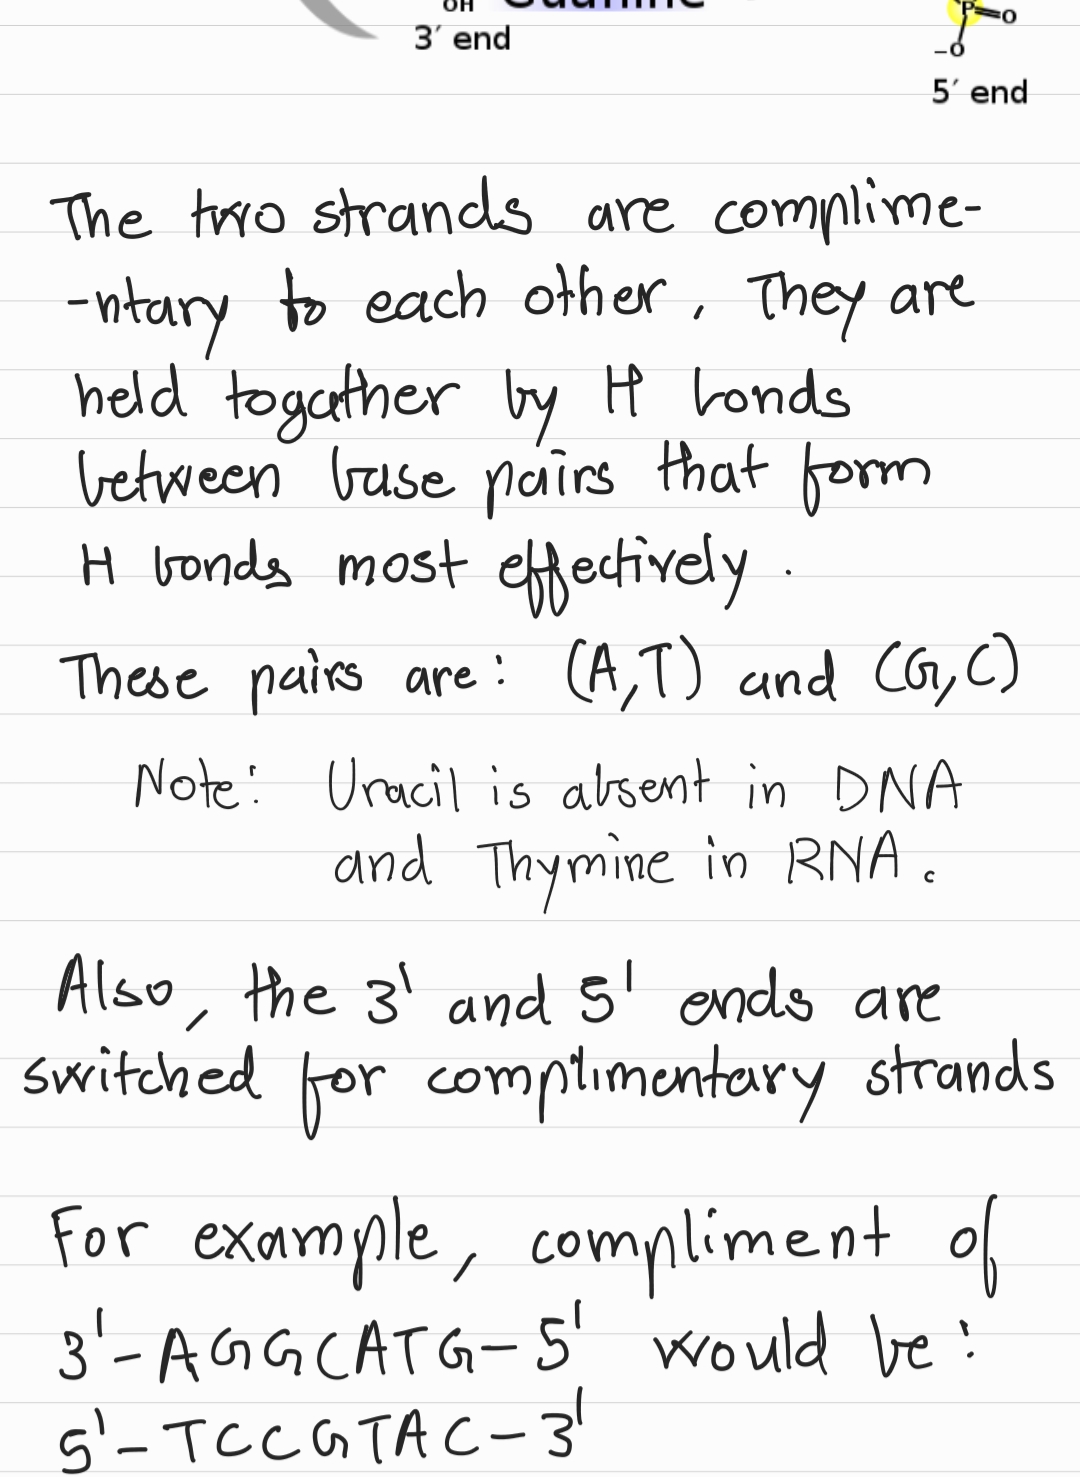 OH Guanine P O
3′ end
–O
5′ end
The two strands are complime-
-ntary to each other. They are
held togather by H bonds
between base pairs that form
H bonds most effectively.
These pairs are: (A,T) and (G,C)
Note: Uracil is absent in DNA
and Thymine in RNA.
Also, the 3' and 5' ends are
switched for complimentary strands
For example, compliment of
3'-AGGCATG-5' would be:
5'-TCCGTAC-3'